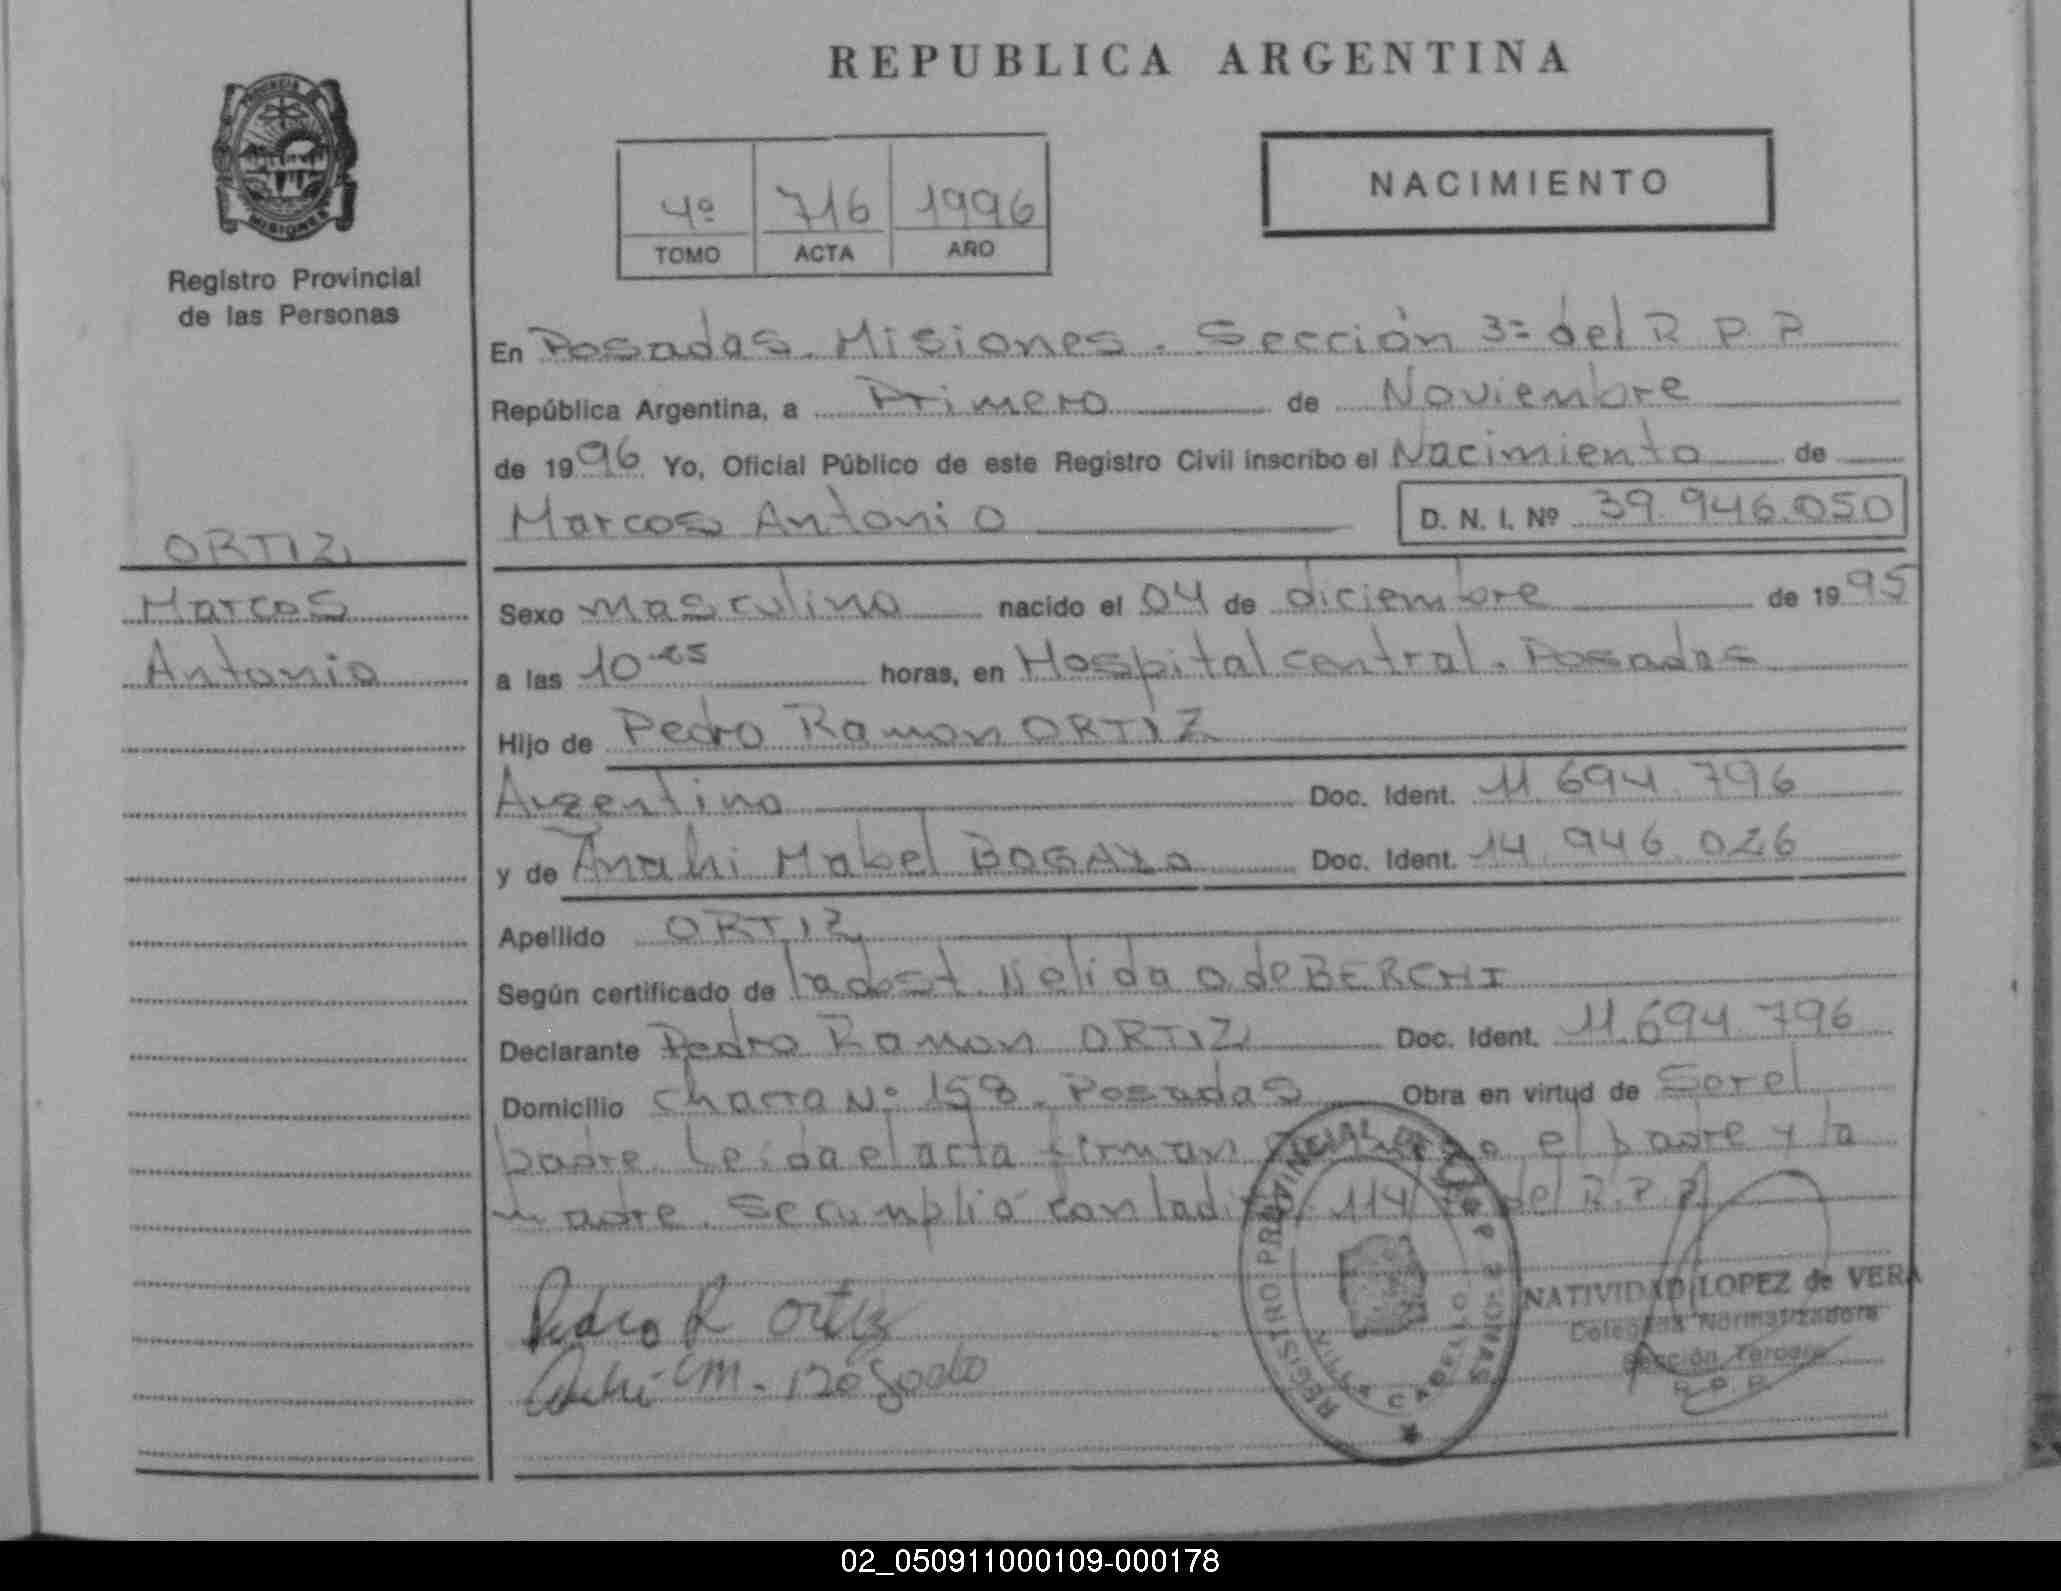 REPUBLICA ARGENTINA
PROVINCIA
MISIONES
Registro Provincial
de las Personas
4º 716 1996
TOMO ACTA AÑO
NACIMIENTO
En Posadas. Misiones. Sección 3ª del R P P
República Argentina, a Primero de Noviembre
de 1996 Yo, Oficial Público de este Registro Civil inscribo el Nacimiento de
Marcos Antonio D. N. I. Nº 39.946.050
ORTIZ
Marcos
Antonio
Sexo masculino nacido el 04 de diciembre de 1995
a las 10 horas, en Hospital central. Posadas
Hijo de Pedro Ramon ORTIZ
Argentino Doc. Ident. 11.694.796
y de Anahi Mabel Doc. Ident. 14.946.026
Apellido ORTIZ
Según certificado de la obst. Nelida O de BERCHI
Declarante Pedro Ramon ORTIZ Doc. Ident. 11.694.796
Domicilio chacra Nº 158. Posadas Obra en virtud de Ser el
padre. Leida el acta firman el padre y la
madre. Se cumplió con la 114 del R.P.P.
Pedro R Ortiz
REGISTRO PROVINCIAL DE LAS PERSONAS
NATIVIDAD LOPEZ de VERA
Delegada Normatizadora
Sección Tercera
R. P. P.
02_050911000109-000178